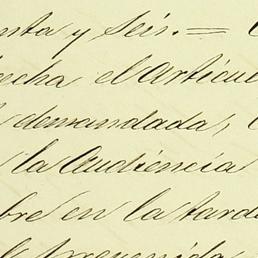 nta y Seis. =
echa el Articu
demandada,
la Audiencia
bre en la tard
prevenida